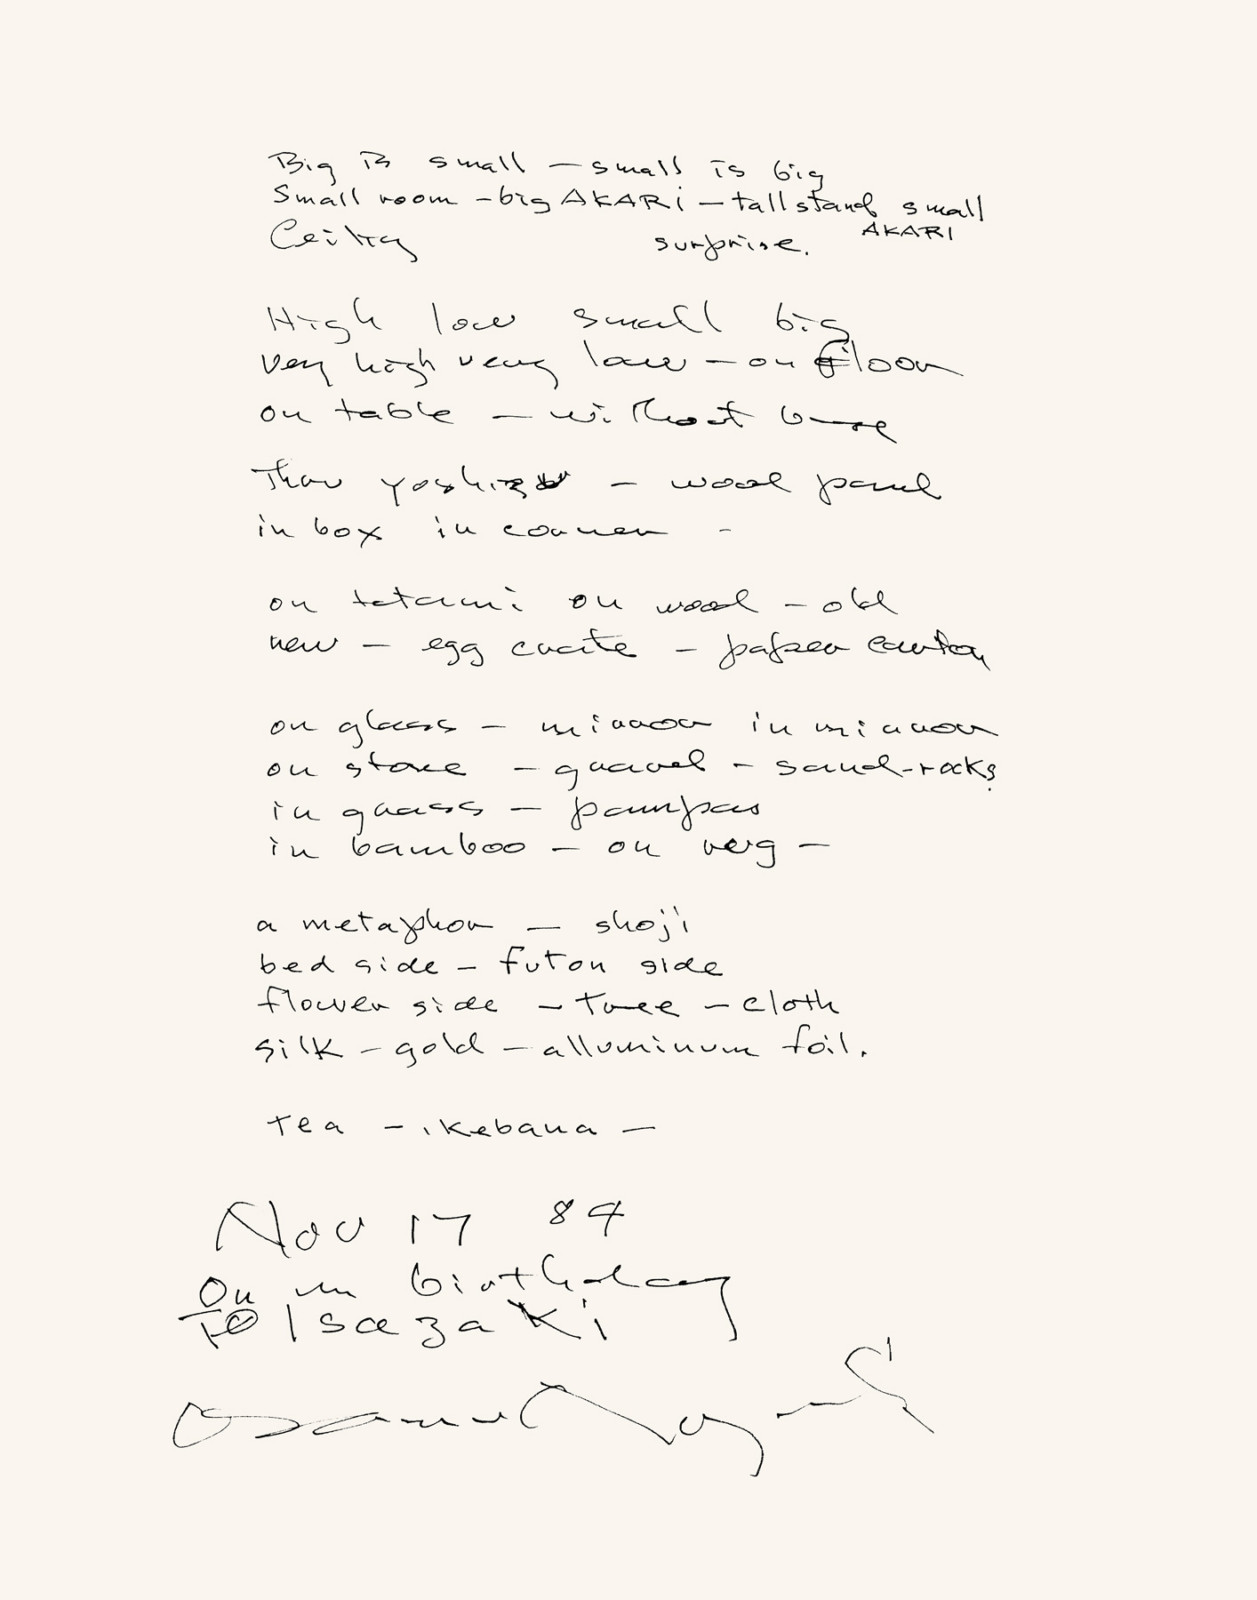 Big is small — small is big
Small room - big AKARI — tall stand small
Ceiling surprise. AKARI
High low small big
very high very low — on floor
on table — without base
Thru yoshizu — wood panel
in box in corner -
on tatami on wood - old
new — egg crate - paper carton
on glass — mirror in mirror
on stone - gravel - sand-rocks
in grass — pampas
in bamboo — on —
a metaphor — shoji
bed side — futon side
flower side — tree — cloth
silk — gold — alluminum foil.
tea - ikebana —
Nov 17 84
On birthday
to Isozaki
Isamu Noguchi